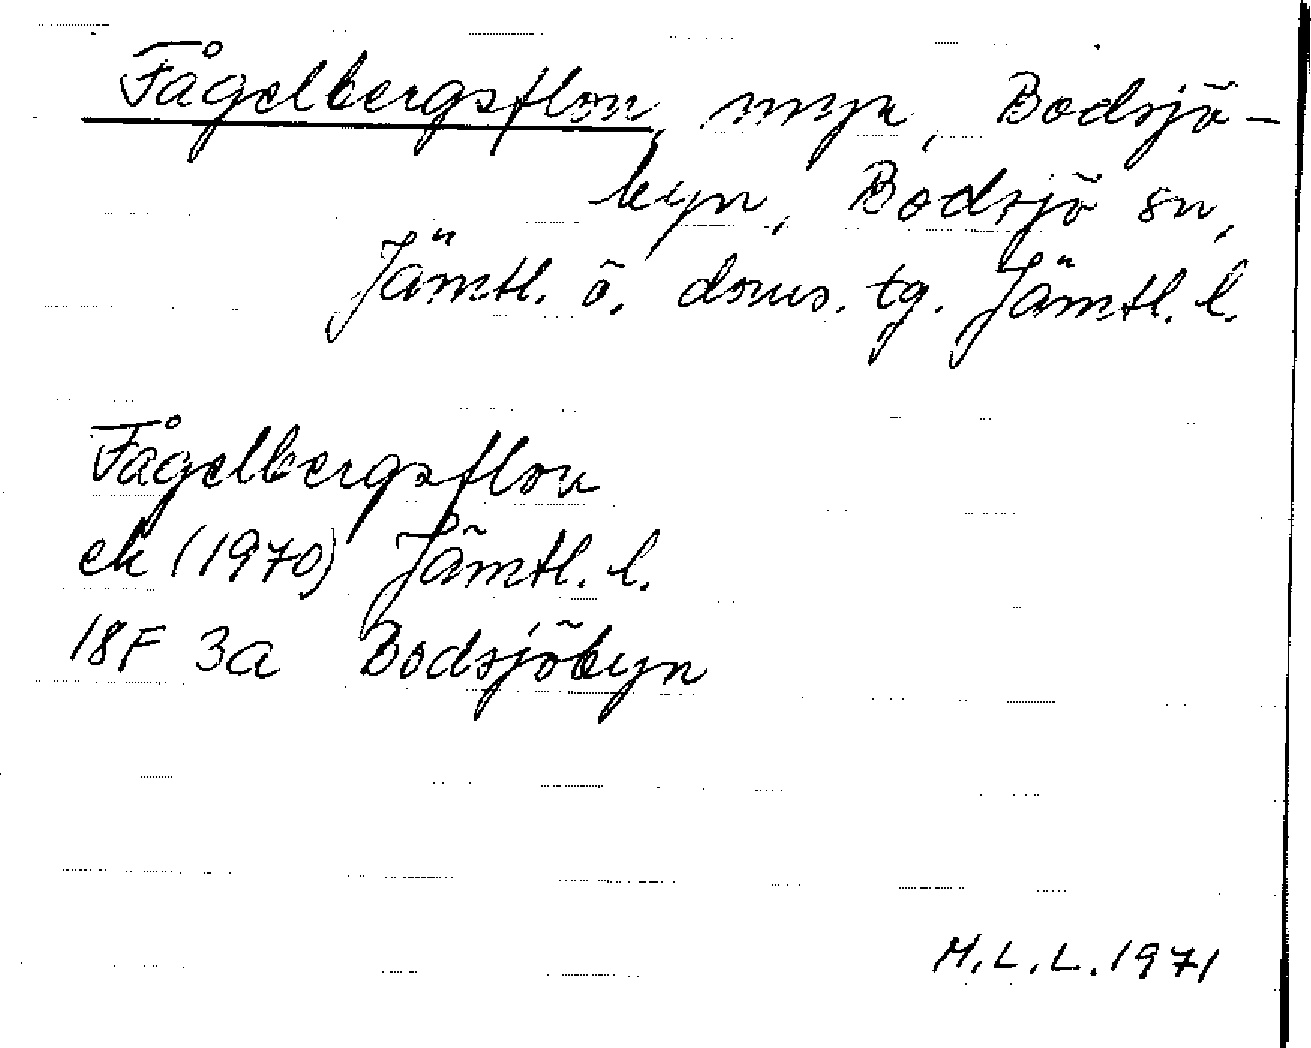 Fågelbergsflon, myr, Bodsjö-
byn, Bodsjö sn,
Jämtl. ö. doms. tg. Jämtl. l.
Fågelbergsflon
ek (1970) Jämtl. l.
18F 3a Bodsjöbyn
M.L.L. 1971